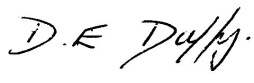 D.E Duffy.